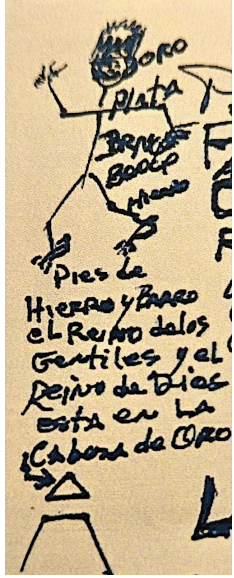 ORO
Plata
Hierro
Pies de
Hierro y Barro
el Reino de los
Gentiles y el
Reino de Dios
esta en La
Cabeza de ORO